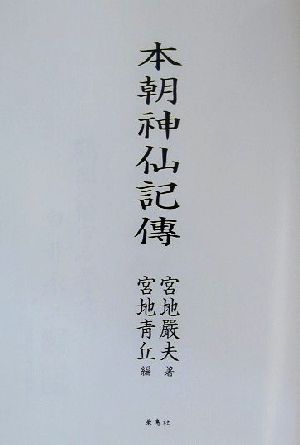 本朝神仙記傳
宮地嚴夫 著
宮地青丘 編